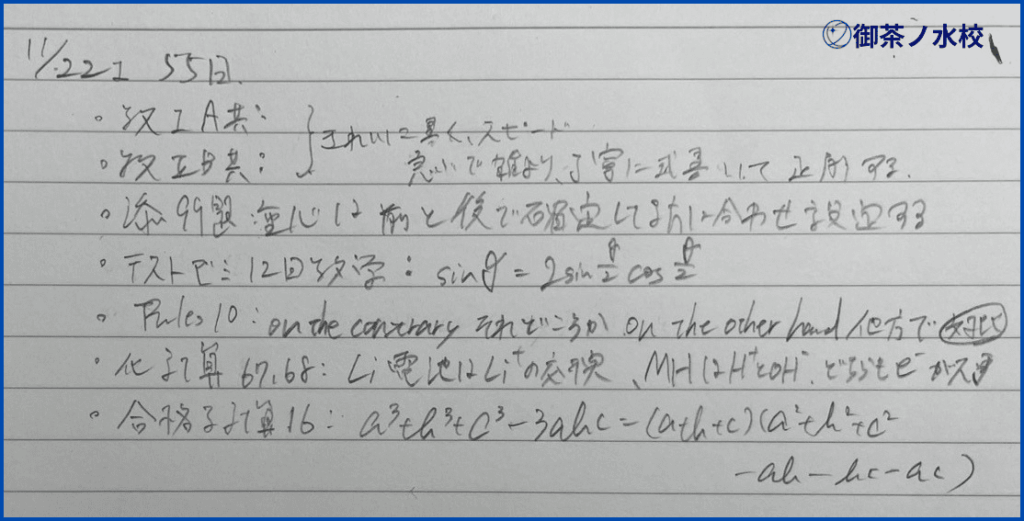 御茶ノ水校
11/22 工 55日.
。数ⅠA共：
。数ⅡB共：
きれいに書く、スピード
急いで雑より、丁寧に式書いて正解する.
。添99題 重心は前と後で固定してる方に合わせ設定する
。テストゼミ12回数学：sinθ=2sinθ/2 cosθ/2
。Rules10：on the contrary それどころか on the other hand 他方で 対比
。化計算 67,68：Li電池はLi⁺の交換、MHはH⁺とOH⁻、どちらもe⁻が
。合格る計算16：a³+b³+c³-3abc=(a+b+c)(a²+b²+c²
-ab-bc-ac)